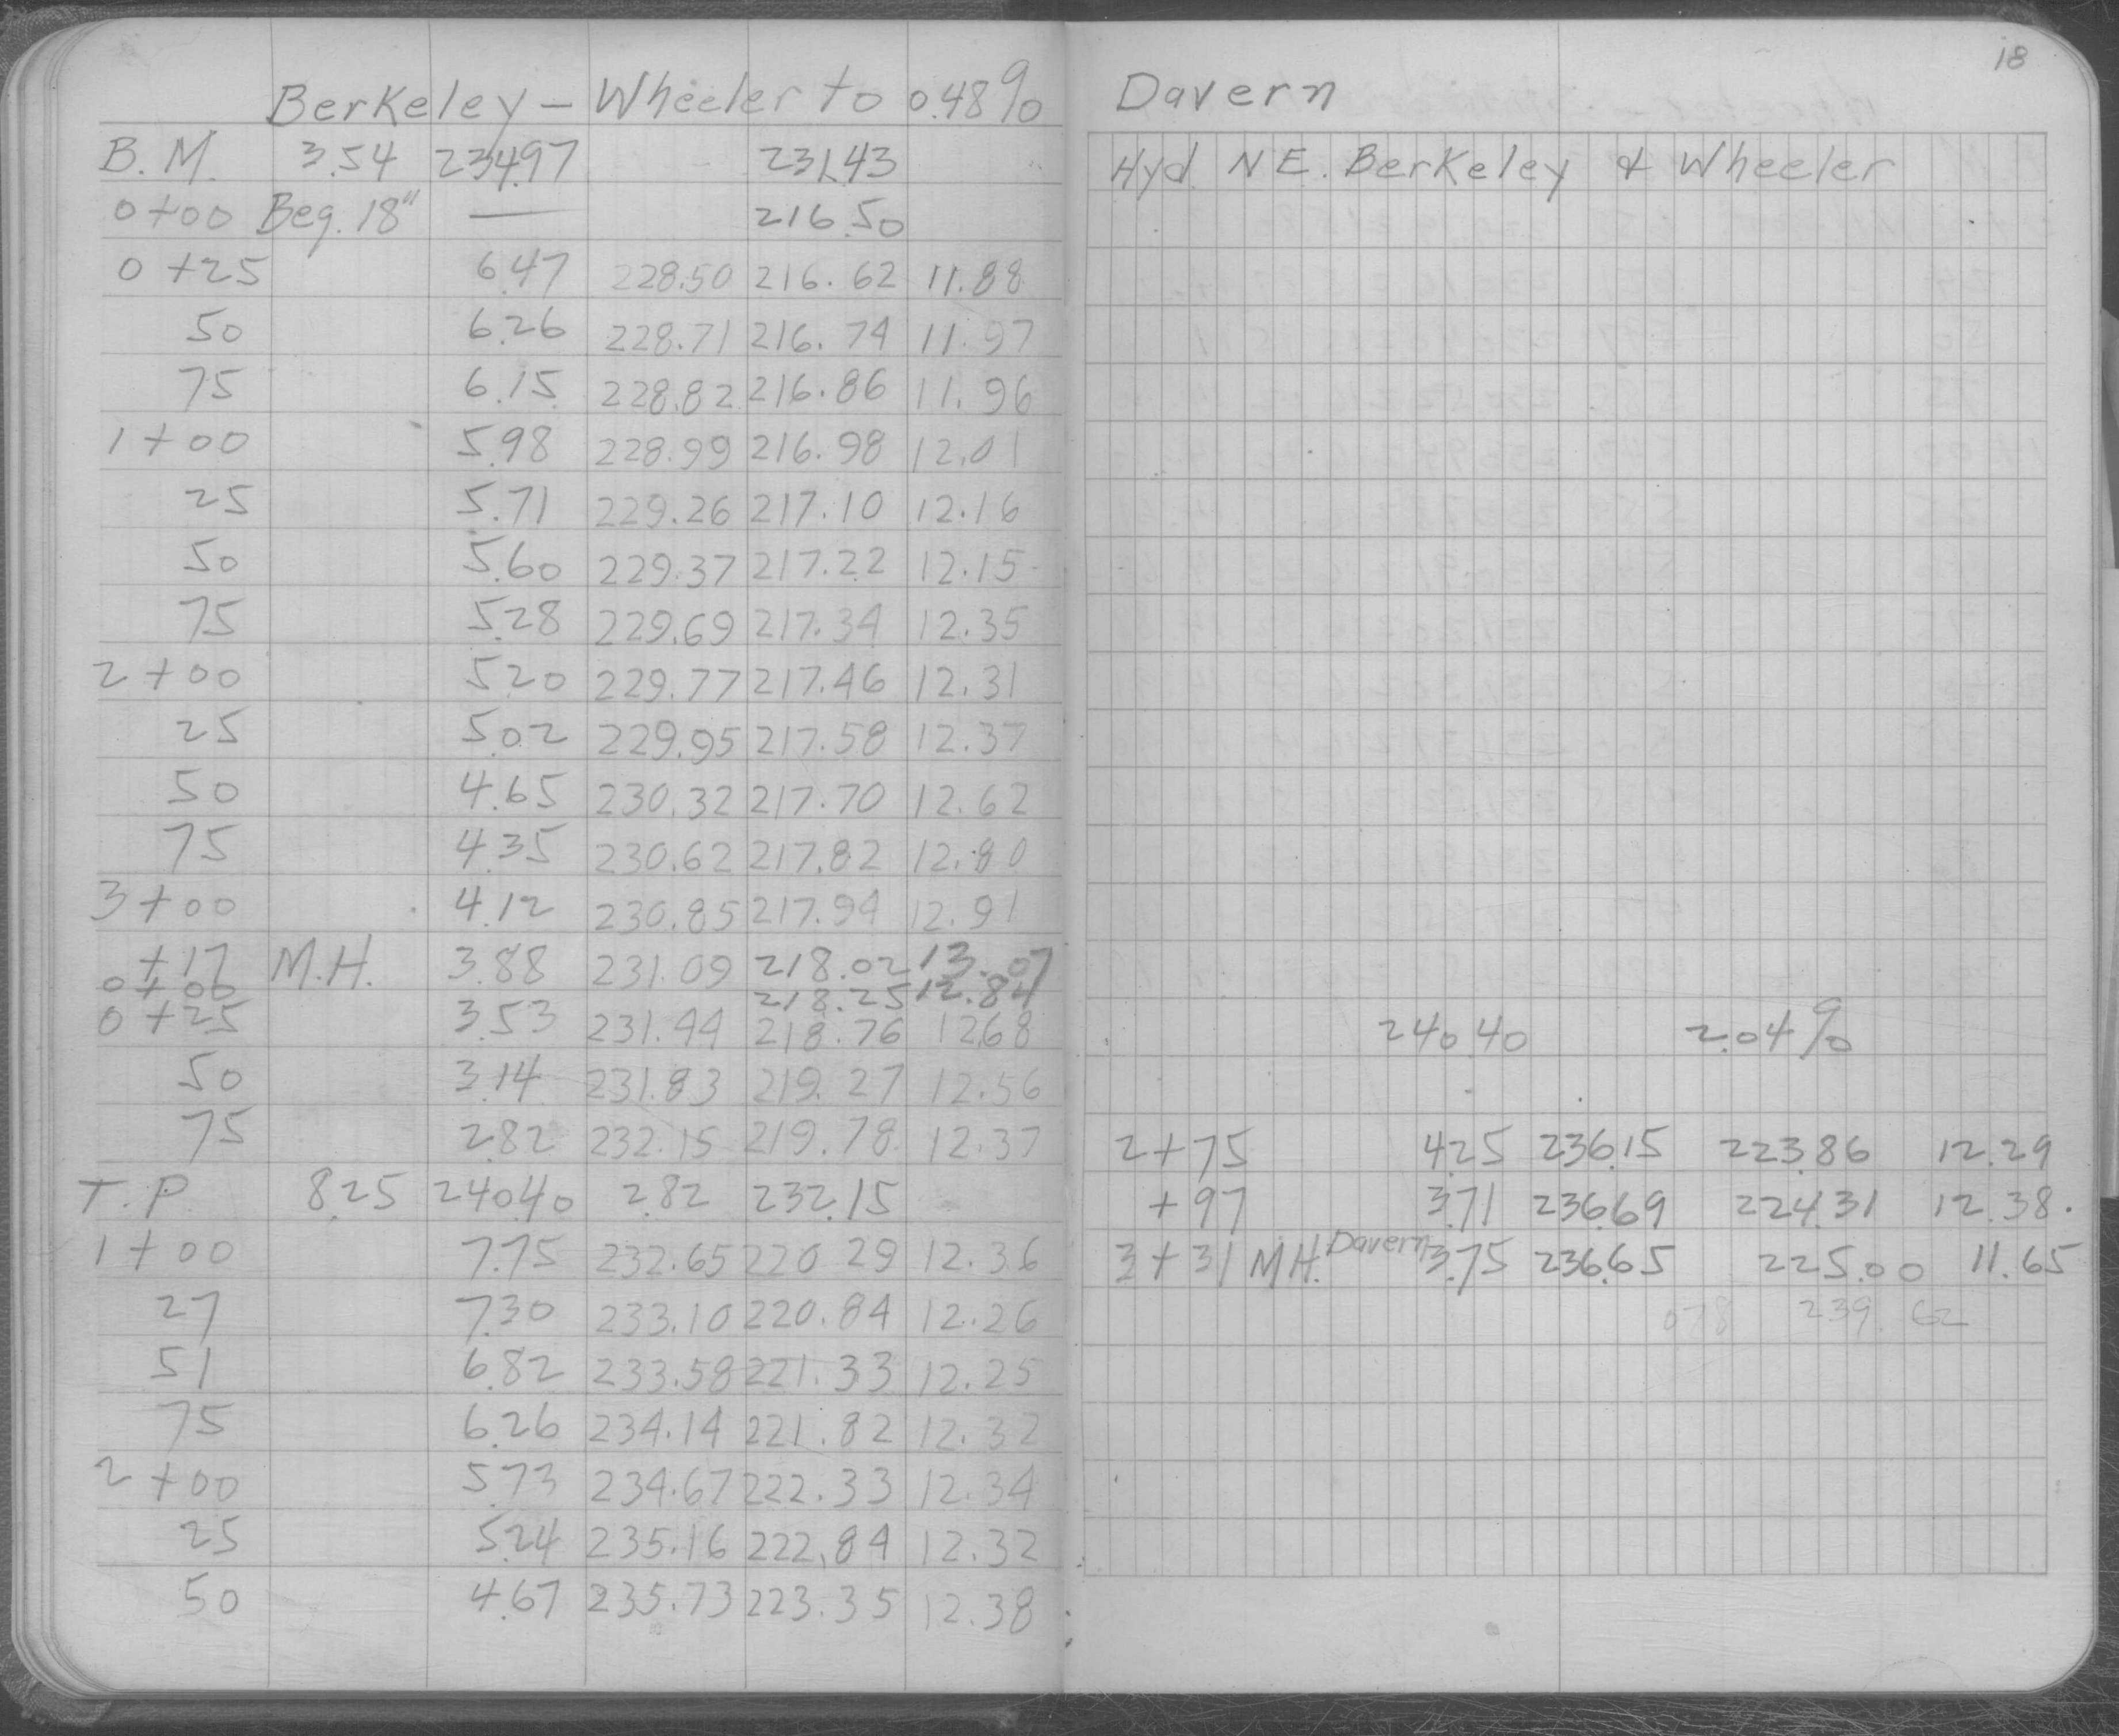 18
Berkeley – Wheeler to 0.48% Davern
B.M. 3.54 234.97 231.43 Hyd. N E. Berkeley & Wheeler
0+00 Beg. 18" — 216.50
0+25 6.47 228.50 216.62 11.88
50 6.26 228.71 216.74 11.97
75 6.15 228.82 216.86 11.96
1+00 5.98 228.99 216.98 12.01
25 5.71 229.26 217.10 12.16
50 5.60 229.37 217.22 12.15
75 5.28 229.69 217.34 12.35
2+00 5.20 229.77 217.46 12.31
25 5.02 229.95 217.58 12.37
50 4.65 230.32 217.70 12.62
75 4.35 230.62 217.82 12.80
3+00 4.12 230.85 217.94 12.91
+17 M.H. 3.88 231.09 218.02 13.07
0+00 218.25 12.84
0+25 3.53 231.44 218.76 12.68 240.40 2.04%
50 3.14 231.83 219.27 12.56
75 2.82 232.15 219.78 12.37 2+75 4.25 236.15 223.86 12.29
T.P. 8.25 240.40 2.82 232.15 +97 3.71 236.69 224.31 12.38.
1+00 7.75 232.65 220 29 12.36 3+31 M.H. Davern 3.75 236.65 225.00 11.65
27 7.30 233.10 220.84 12.26 078 239.62
51 6.82 233.58 221.33 12.25
75 6.26 234.14 221.82 12.32
2+00 5.73 234.67 222.33 12.34
25 5.24 235.16 222.84 12.32
50 4.67 235.73 223.35 12.38